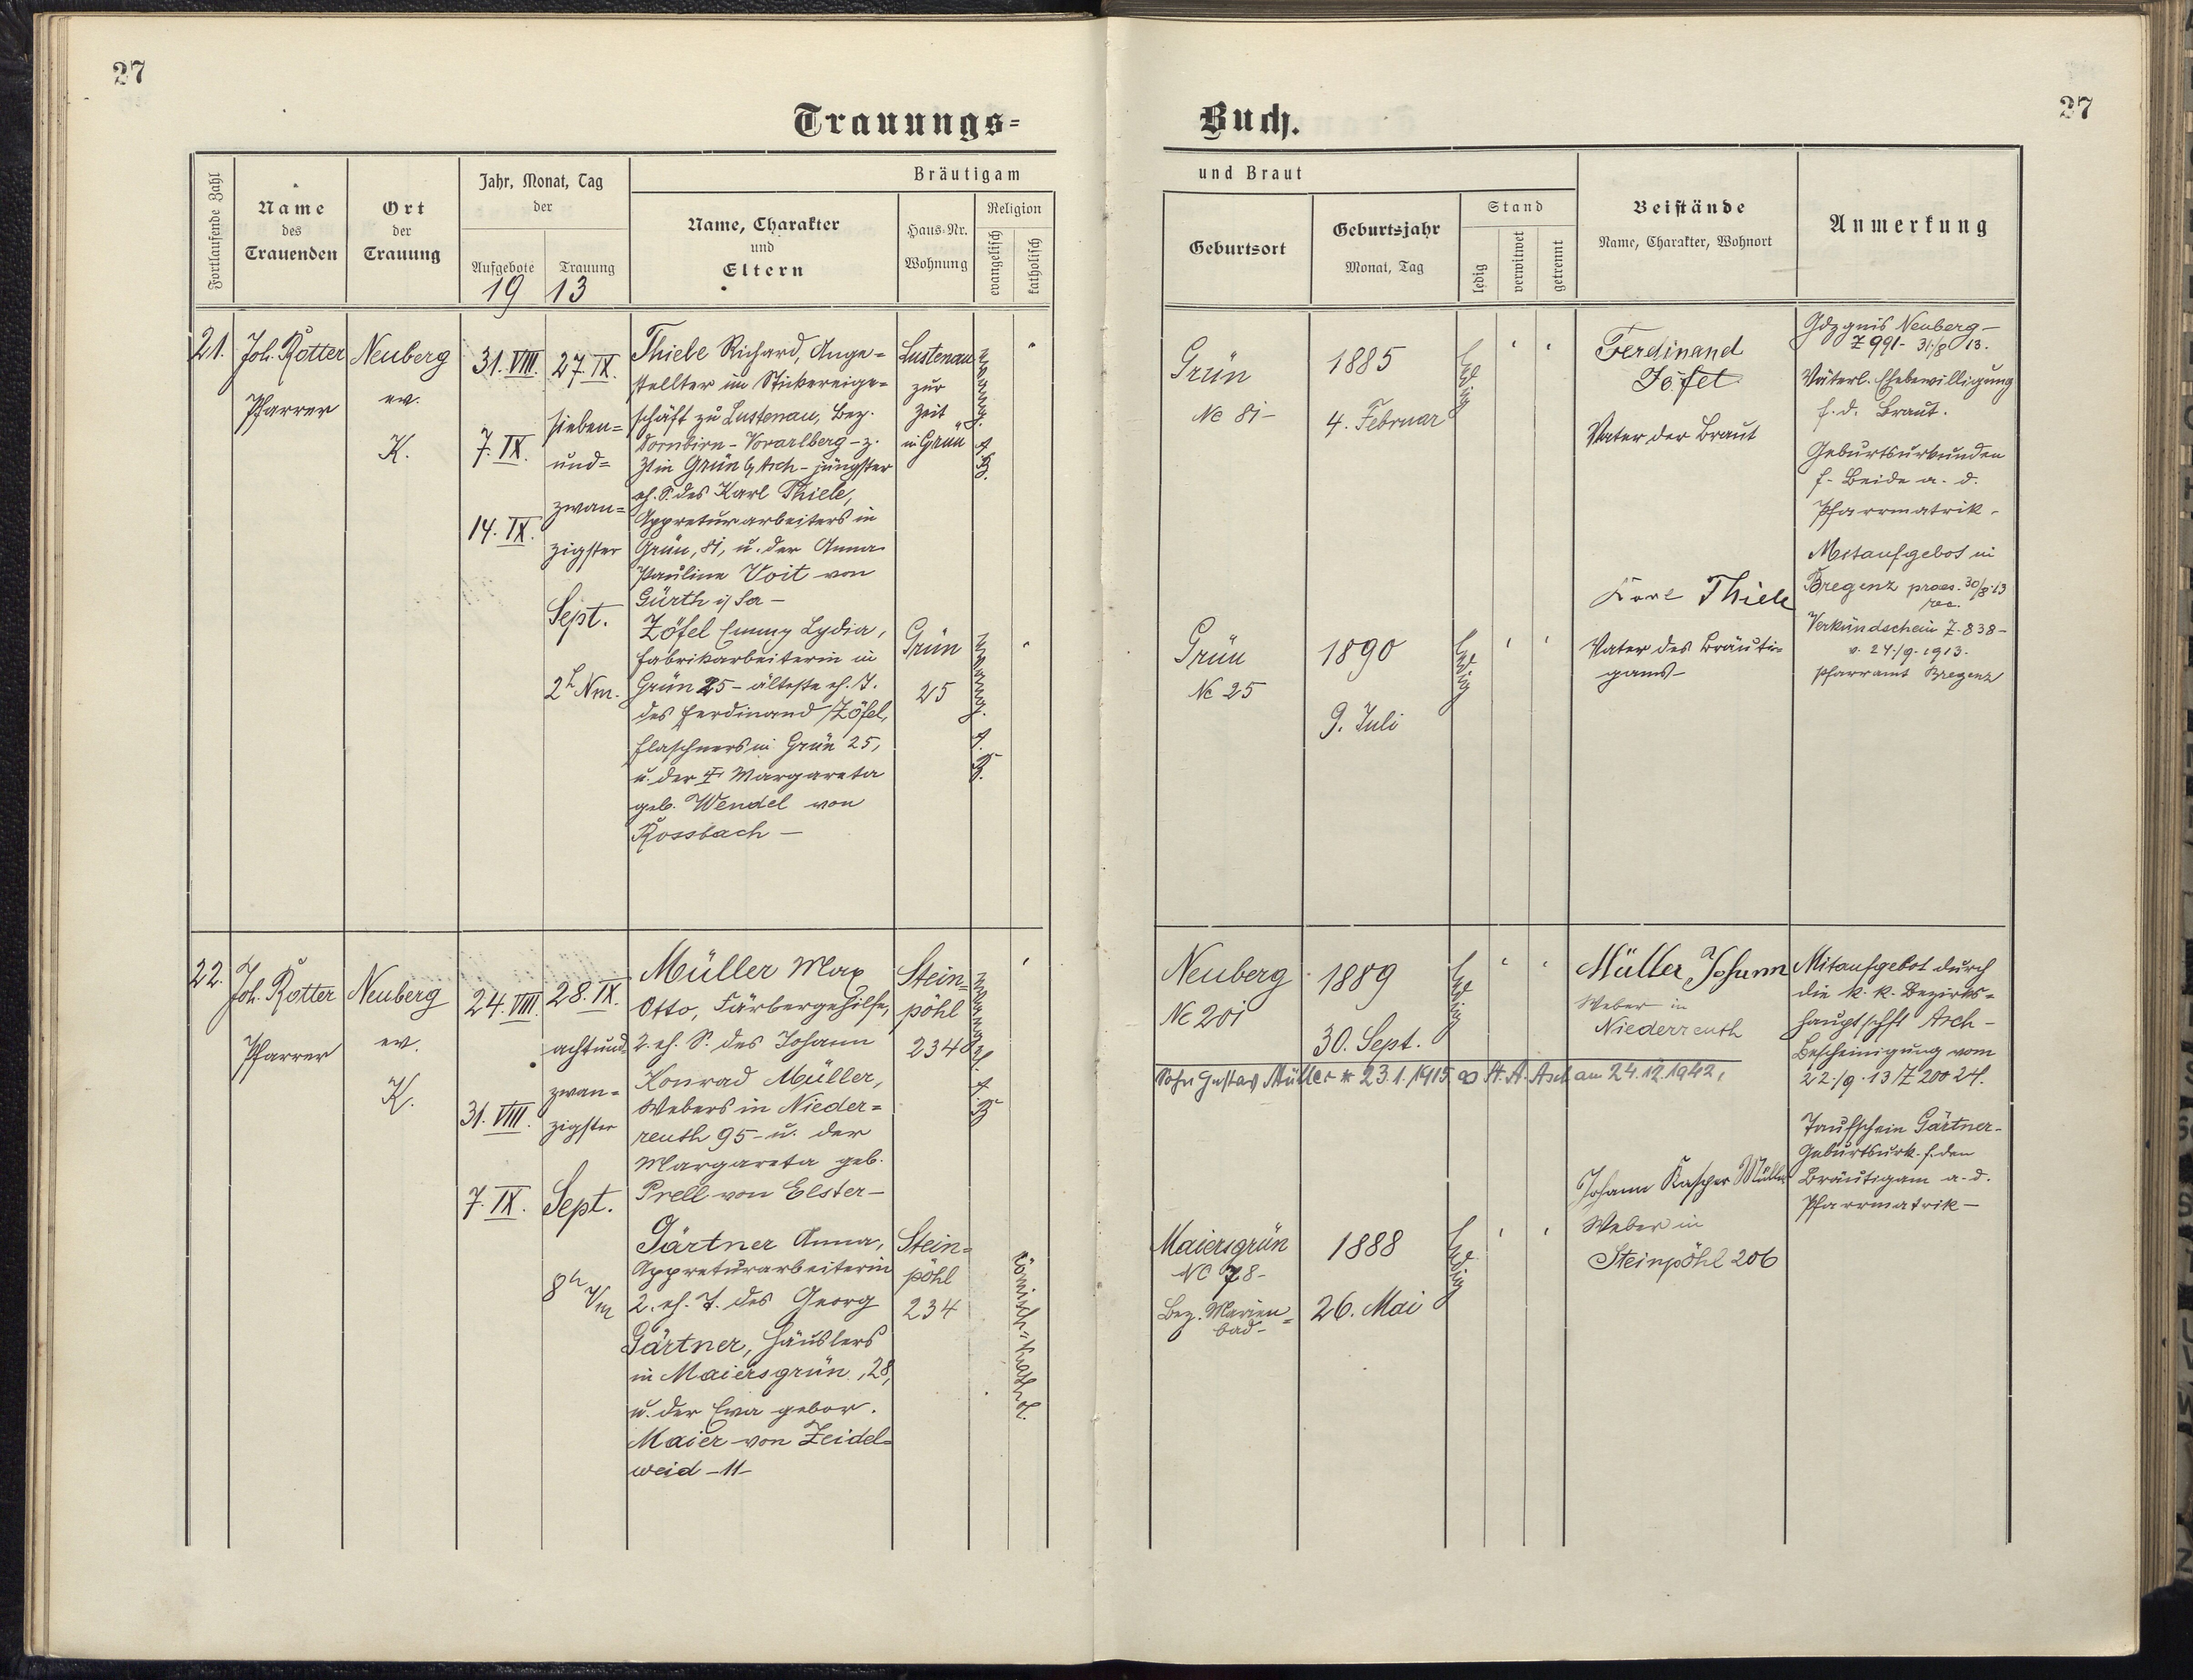 27
27
Trauungs=
Buch.
Fortlaufende Zahl
Name
des
Trauenden
Ort
der
Trauung
Jahr, Monat, Tag
der
Aufgebote
Trauung
19 13
Bräutigam
Name, Charakter
und
Eltern
Haus-Nr.
Wohnung
Religion
evangelisch
katholisch
und Braut
Geburtsort
Geburtsjahr
Monat, Tag
Stand
ledig
verwitwet
getrennt
Beistände
Name, Charakter, Wohnort
Anmerkung
21.
Joh. Rotter
Pfarrer
Neuberg
ev.
K.
31. VIII.
7. IX.
14. IX.
27. IX.
sieben=
und=
zwan=
zigster
Sept.
2h Nm.
Thiele Richard, Ange=
stellter im Stickereige=
schäft zu Lustenau, Bez.
Dornbirn - Vorarlberg - z.
Zt in Grün b/ Asch - jüngster
eh. S. des Karl Thiele,
Appreturarbeiters in
Grün, 81, u. der Anna
Pauline Voit von
Gürth i/ Sa -
Lustenau
zur
Zeit
in Grün
evang. A. B.
Zöfel Emmy Lydia,
Fabrikarbeiterin in
Grün 25 - älteste eh. T.
des Ferdinand Zöfel,
Flaschners in Grün 25,
u. der Margareta
geb. Wendel von
Rossbach -
Grün
25
evang. A. B.
Grün
Nc 81 -
1885
4. Februar
ledig
Ferdinand
Zöfel
Vater der Braut
Grün
Nc 25
1890
9. Juli
ledig
Karl Thiele
Vater des Bräuti=
gams -
Neuberg -
Z 991 - 31/8 13.
Väterl. Ehebewilligung
f. d. Braut.
Geburtsurkunden
f. Beide a. d.
Pfarrmatrik -
Mitaufgebot in
Bregenz praes. 30/8. 13
Verkündschein Z. 838 -
v. 24./9. 1913.
Pfarramt Bregenz
22.
Joh. Rotter
Pfarrer
Neuberg
ev.
K.
24. VIII.
31. VIII.
7. IX.
28. IX.
achtund
zwan=
zigster
Sept.
8h Vm
Müller Max
Otto, Färbergehilfe,
2. eh. S. des Johann
Konrad Müller,
Webers in Nieder=
reuth 95 - u. der
Margareta geb.
Prell von Elster -
Stein=
pöhl
234
evangel. A. B
Gärtner Anna,
Appreturarbeiterin
2. eh. T. des Georg
Gärtner, Häuslers
in Maiersgrün, 28,
u. der Eva gebor.
Maier von Zeidel=
weid - 11 -
Stein=
pöhl
234
römisch=kathol.
Neuberg
Nc 201
1889
30. Sept.
ledig
Müller Johann
Weber in
Niederreuth
Sohn Gustav Müller * 23.1.1915 ∞ St. A. Asch am 24.12.1942,
Maiersgrün
Nc 78 -
Bez. Marien=
bad -
1888
26. Mai
ledig
Johann Kasper Müller
Weber in
Steinpöhl 206
Mitaufgebot durch
die k. k. Bezirks=
hauptschft Asch -
Bescheinigung vom
22./9. 13 / Z 200 24.
Taufschein Gärtner -
Geburtsurk. f. den
Bräutigam a. d.
Pfarrmatrik -